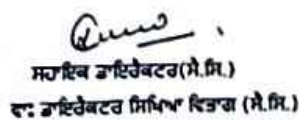 ਸਹਾਇਕ ਡਾਇਰੈਕਟਰ(ਸੈ.ਸਿ.)
ਦਾ: ਡਾਇਰੈਕਟਰ ਸਿਖਿਆ ਵਿਭਾਗ (ਸੈ.ਸਿ.)